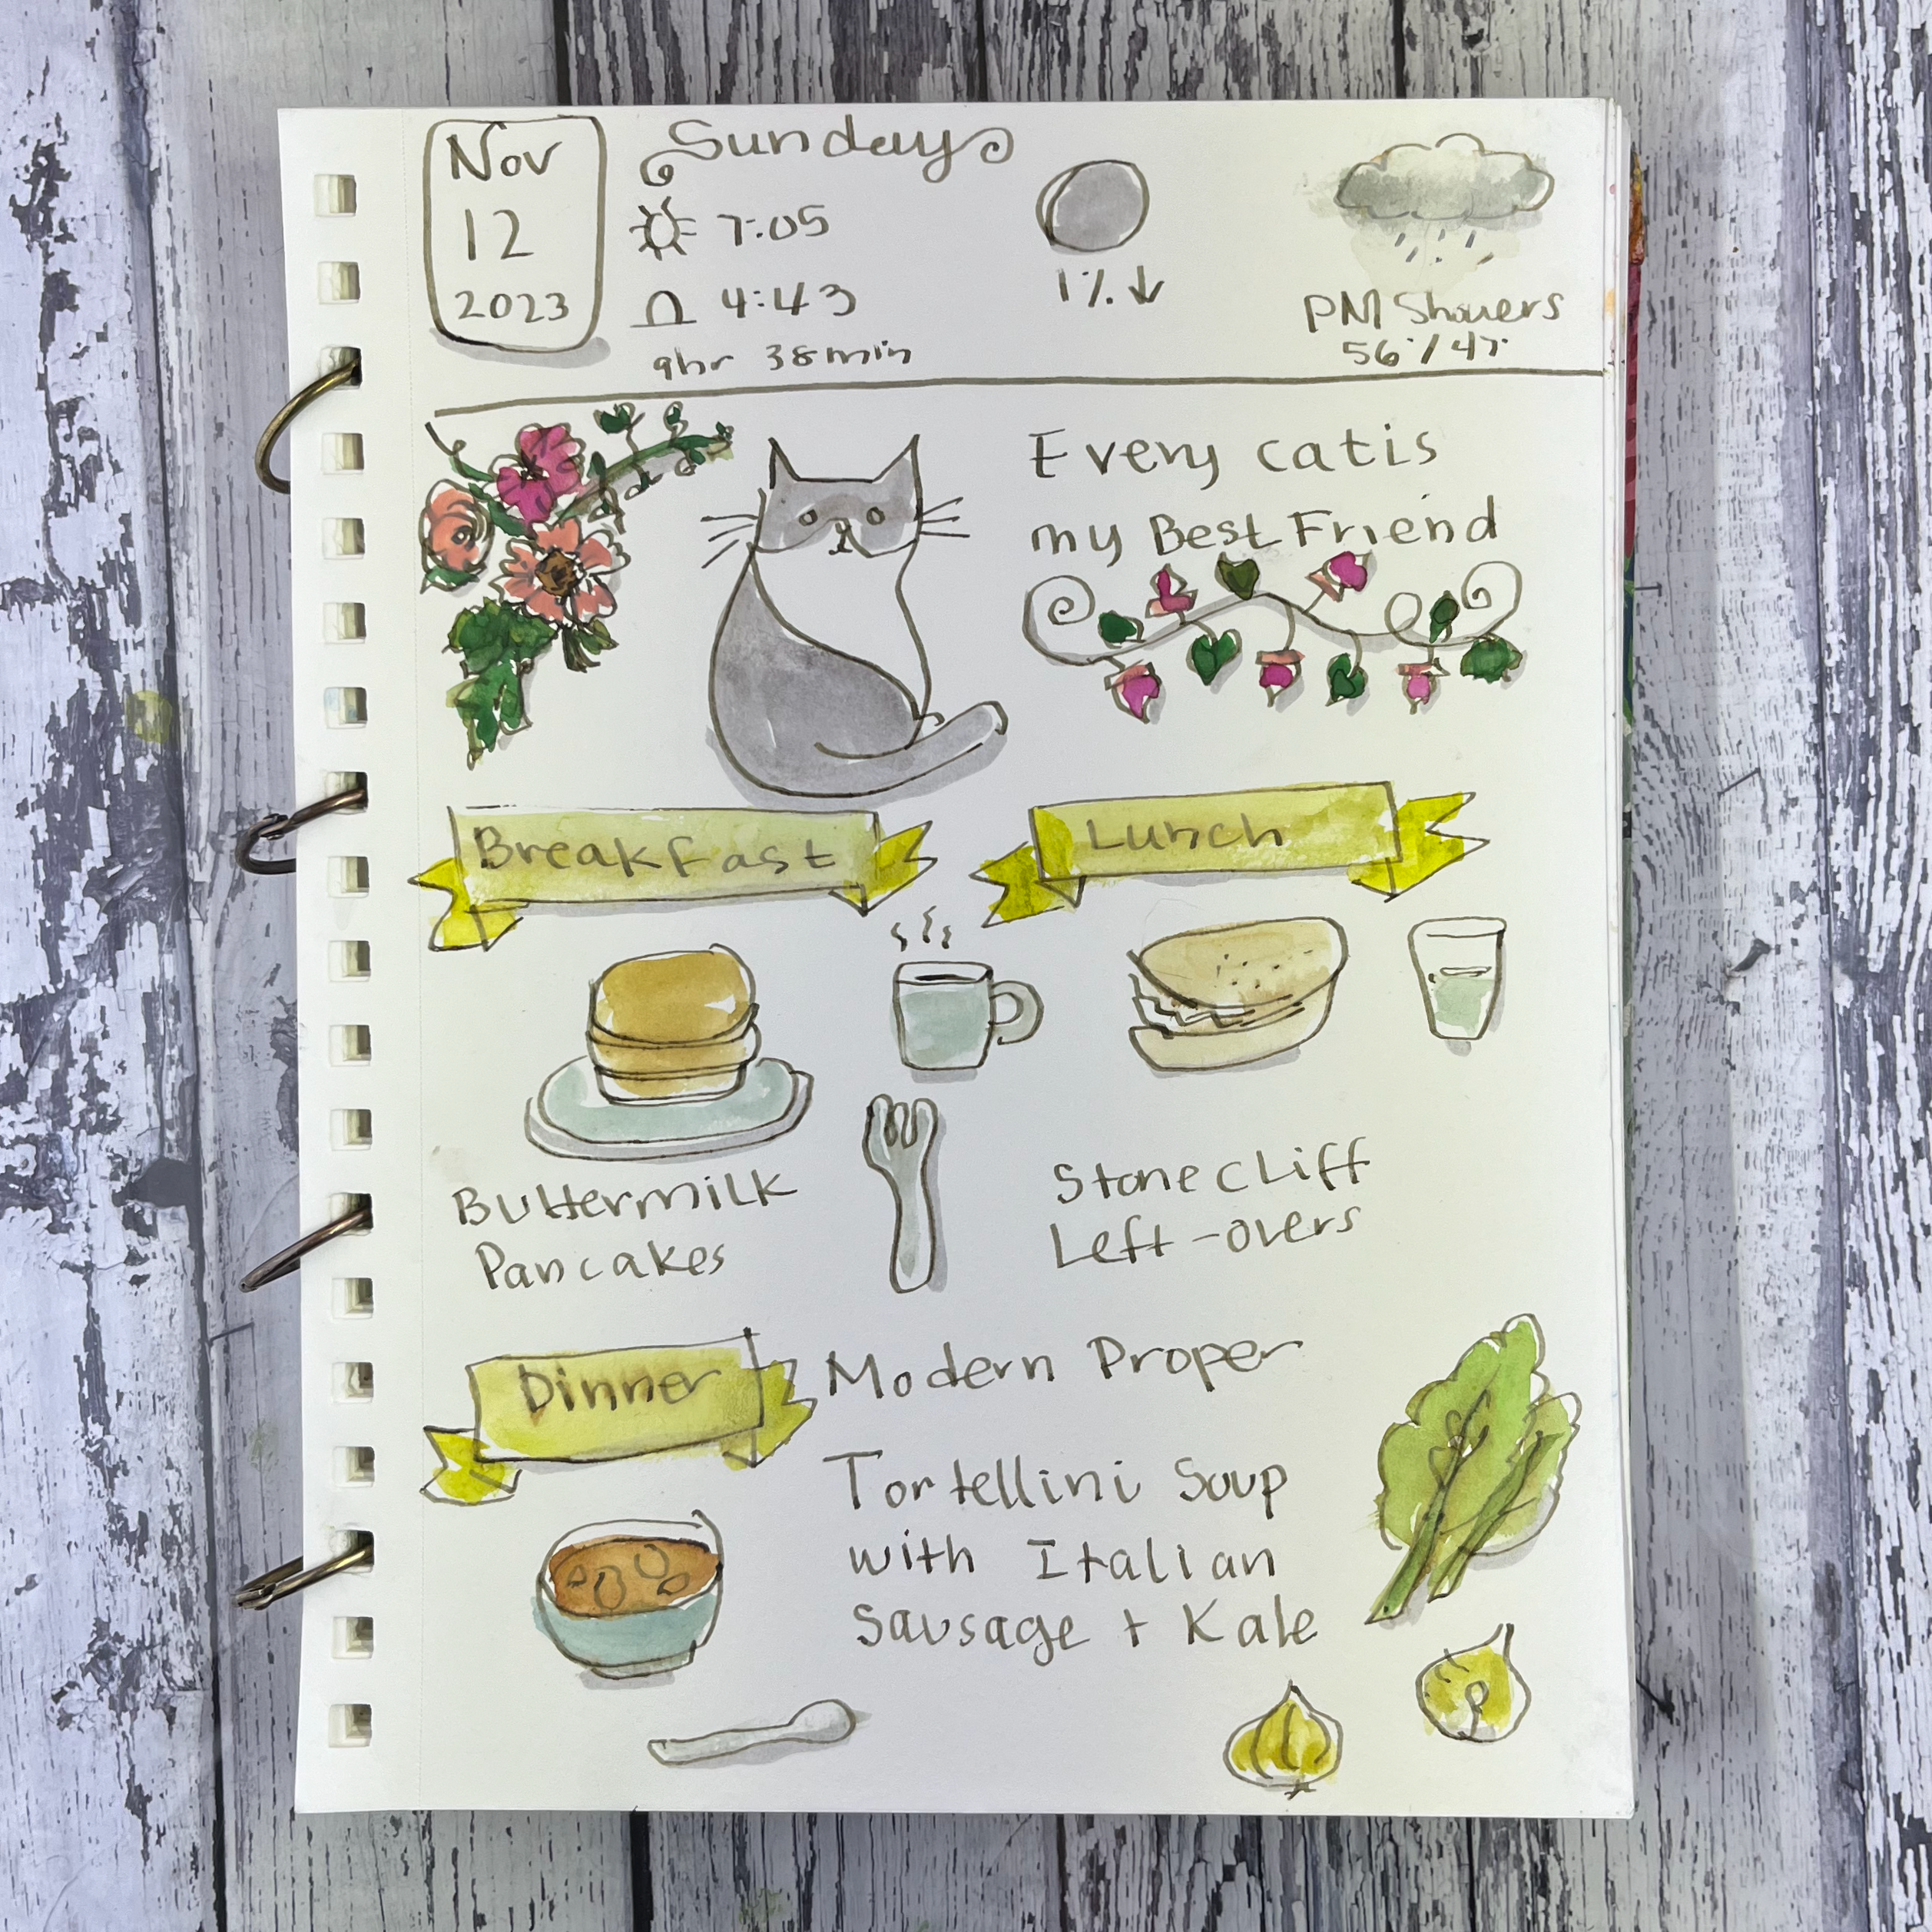 Nov
12
2023
Sunday
7:05
4:43
9hr 38min
1%↓
PM Showers
56°/47°
Every cat is
my Best Friend
Breakfast
Lunch
Buttermilk
Pancakes
Stonecliff
Left-overs
Dinner
Modern Proper
Tortellini Soup
with Italian
Sausage + Kale